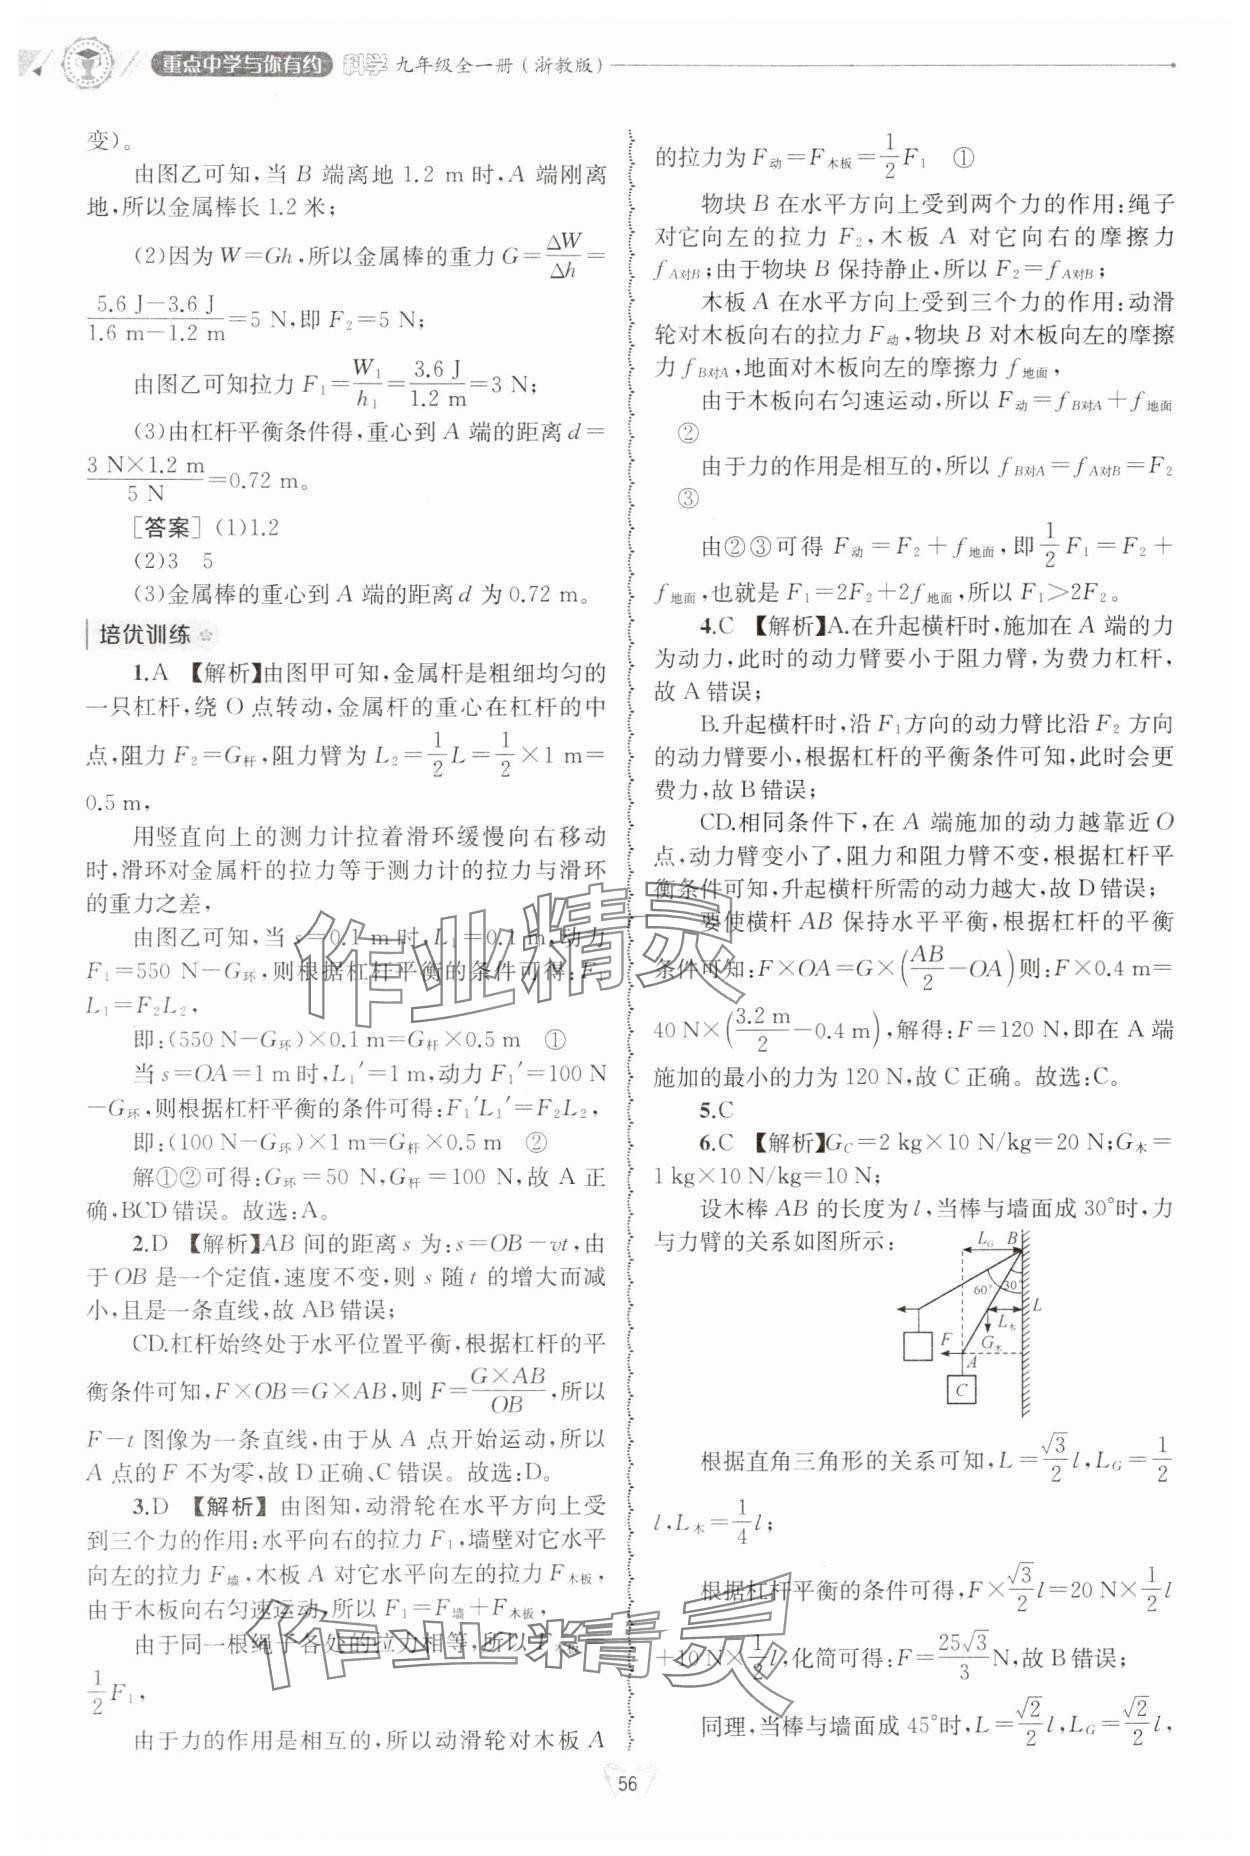 重点中学与你有约 科学 九年级全一册（浙教版）
变）。
由图乙可知，当 B 端离地 1.2 m 时，A 端刚离
地，所以金属棒长 1.2 米；
(2)因为 W=Gh，所以金属棒的重力 G=ΔW/Δh=
(5.6 J-3.6 J)/(1.6 m-1.2 m)=5 N，即 F₂=5 N；
由图乙可知拉力 F₁=W₁/h₁=3.6 J/1.2 m=3 N；
(3)由杠杆平衡条件得，重心到 A 端的距离 d=
(3 N×1.2 m)/5 N=0.72 m。
[答案] (1)1.2
(2)3 5
(3)金属棒的重心到 A 端的距离 d 为 0.72 m。
培优训练
1.A 【解析】由图甲可知，金属杆是粗细均匀的
一只杠杆，绕 O 点转动，金属杆的重心在杠杆的中
点，阻力 F₂=G杆，阻力臂为 L₂=1/2L=1/2×1 m=
0.5 m，
用竖直向上的测力计拉着滑环缓慢向右移动
时，滑环对金属杆的拉力等于测力计的拉力与滑环
的重力之差，
由图乙可知，当 s=0.1 m 时，L₁=0.1 m，动力
F₁=550 N-G环，则根据杠杆平衡的条件可得：F₁
L₁=F₂L₂，
即：(550 N-G环)×0.1 m=G杆×0.5 m ①
当 s=OA=1 m 时，L₁′=1 m，动力 F₁′=100 N
-G环，则根据杠杆平衡的条件可得：F₁′L₁′=F₂L₂，
即：(100 N-G环)×1 m=G杆×0.5 m ②
解①②可得：G环=50 N，G杆=100 N，故 A 正
确，BCD 错误。故选：A。
2.D 【解析】AB 间的距离 s 为：s=OB-vt，由
于 OB 是一个定值，速度不变，则 s 随 t 的增大而减
小，且是一条直线，故 AB 错误；
CD.杠杆始终处于水平位置平衡，根据杠杆的平
衡条件可知，F×OB=G×AB，则 F=(G×AB)/OB，所以
F-t 图像为一条直线，由于从 A 点开始运动，所以
A 点的 F 不为零，故 D 正确、C 错误。故选：D。
3.D 【解析】 由图知，动滑轮在水平方向上受
到三个力的作用：水平向右的拉力 F₁，墙壁对它水平
向左的拉力 F墙，木板 A 对它水平向左的拉力 F木板，
由于木板向右匀速运动，所以 F₁=F墙+F木板，
由于同一根绳子各处的拉力相等，所以 F
1/2F₁，
由于力的作用是相互的，所以动滑轮对木板 A
的拉力为 F动=F木板=1/2F₁ ①
物块 B 在水平方向上受到两个力的作用：绳子
对它向左的拉力 F₂，木板 A 对它向右的摩擦力
fA对B；由于物块 B 保持静止，所以 F₂=fA对B；
木板 A 在水平方向上受到三个力的作用：动滑
轮对木板向右的拉力 F动，物块 B 对木板向左的摩擦
力 fB对A，地面对木板向左的摩擦力 f地面，
由于木板向右匀速运动，所以 F动=fB对A+f地面
②
由于力的作用是相互的，所以 fB对A=fA对B=F₂
③
由②③可得 F动=F₂+f地面，即1/2F₁=F₂+
f地面，也就是 F₁=2F₂+2f地面，所以 F₁>2F₂。
4.C 【解析】A.在升起横杆时，施加在 A 端的力
为动力，此时的动力臂要小于阻力臂，为费力杠杆，
故 A 错误；
B.升起横杆时，沿 F₁方向的动力臂比沿 F₂ 方向
的动力臂要小，根据杠杆的平衡条件可知，此时会更
费力，故 B 错误；
CD.相同条件下，在 A 端施加的动力越靠近 O
点，动力臂变小了，阻力和阻力臂不变，根据杠杆平
衡条件可知，升起横杆所需的动力越大，故 D 错误；
要使横杆 AB 保持水平平衡，根据杠杆的平衡
条件可知：F×OA=G×(AB/2-OA)则：F×0.4 m=
40 N×(3.2 m/2-0.4 m)，解得：F=120 N，即在 A 端
施加的最小的力为 120 N，故 C 正确。故选：C。
5.C
6.C 【解析】G_C=2 kg×10 N/kg=20 N；G木=
1 kg×10 N/kg=10 N；
设木棒 AB 的长度为 l，当棒与墙面成 30°时，力
与力臂的关系如图所示：
L_G B
60° 30°
L
L木
F G木
A
C
根据直角三角形的关系可知，L=√3/2 l，L_G=1/2
l，L木=1/4 l；
根据杠杆平衡的条件可得，F×√3/2 l=20 N×1/2 l
+10 N×1/2 l，化简可得：F=25√3/3 N，故 B 错误；
同理，当棒与墙面成 45°时，L=√2/2 l，L_G=√2/2 l，
56
作业精灵
作业精灵